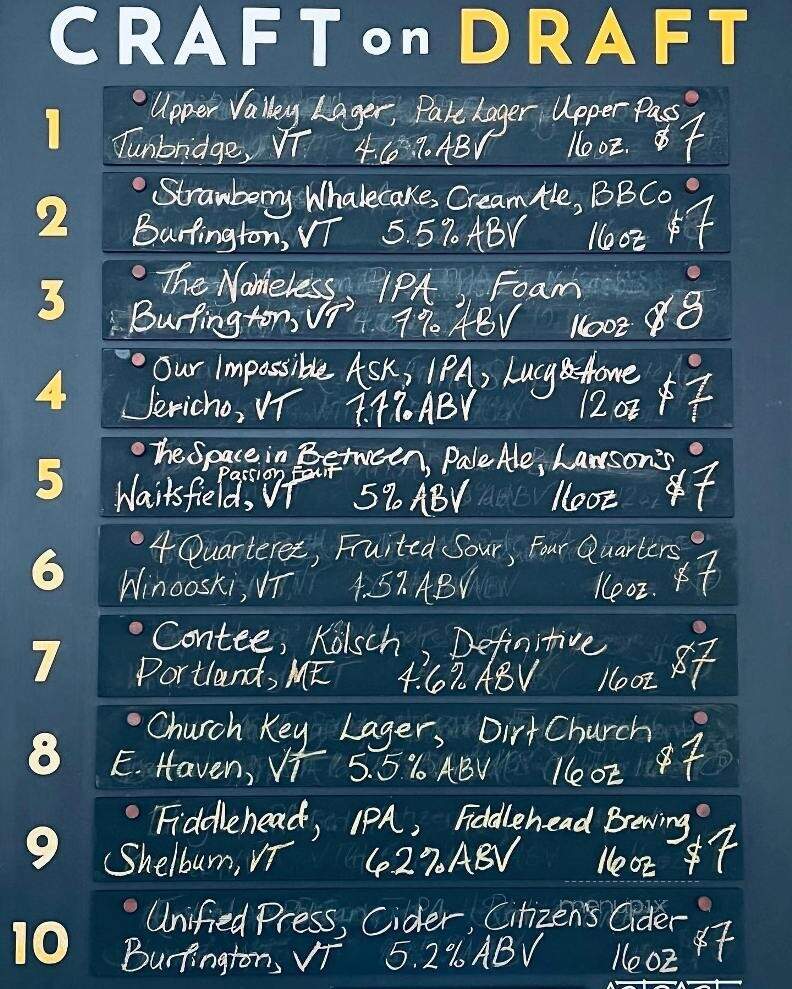 CRAFT on DRAFT
1
Upper Valley Lager, Pale Lager, Upper Pass
Tunbridge, VT 4.6% ABV 16 oz. $7
2
Strawberry Whalecake, Cream Ale, BBCo
Burlington, VT 5.5% ABV 16 oz $7
3
The Nameless, IPA, Foam
Burlington, VT 7% ABV 16oz $8
4
Our Impossible Ask, IPA, Lucy & Howe
Jericho, VT 7.7% ABV 12 oz $7
5
The Space in Between, Pale Ale, Lawson's
Passion Fruit
Waitsfield, VT 5% ABV 16oz $7
6
4 Quarterez, Fruited Sour, Four Quarters
Winooski, VT 4.5% ABV 16 oz. $7
7
Contee, Kölsch, Definitive
Portland, ME 4.6% ABV 16 oz $7
8
Church Key Lager, Dirt Church
E. Haven, VT 5.5% ABV 16 oz $7
9
Fiddlehead, IPA, Fiddlehead Brewing
Shelburn, VT 6.2% ABV 16 oz $7
10
Unified Press, Cider, Citizen's Cider
Burlington, VT 5.2% ABV 16 oz $7
menupix